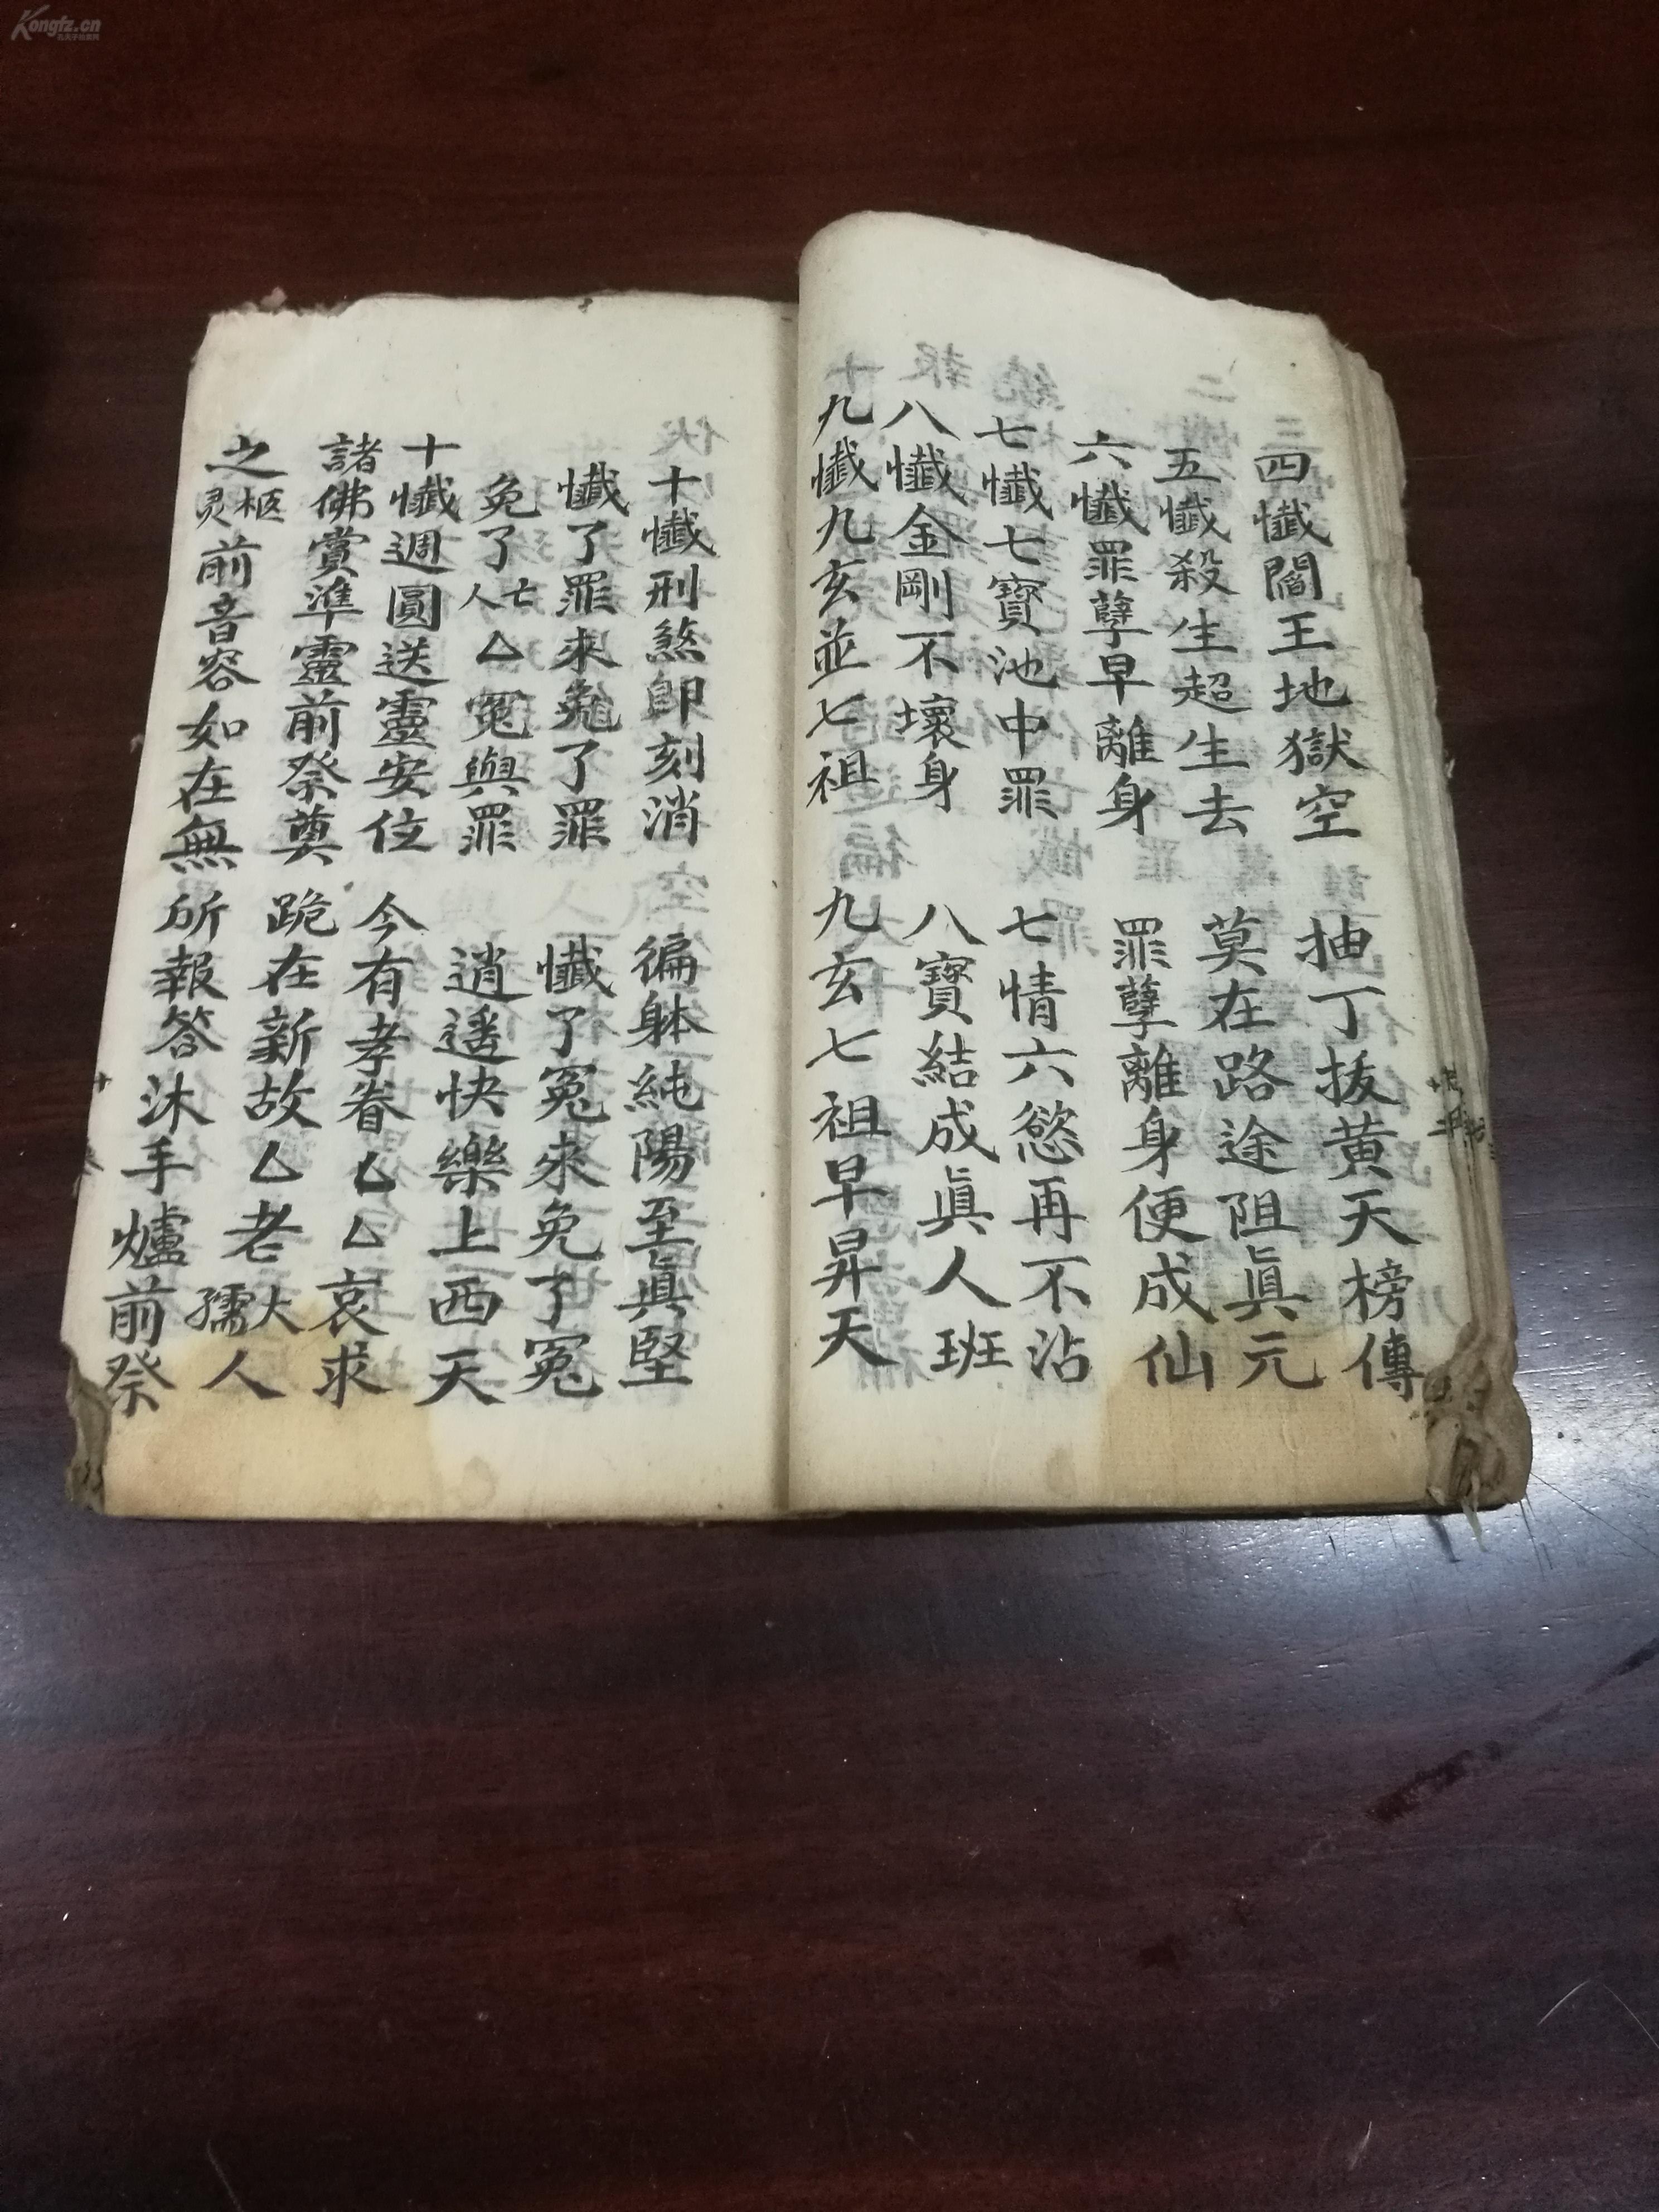 四懺閻王地獄空　抽丁拔黄天榜傳
五懺殺生超生去　莫在路途阻眞元
六懺罪孽早離身　罪孽離身便成仙
七懺七寶池中罪　七情六慾再不沾
八懺金剛不壞身　八寶結成眞人班
九懺九玄並七祖　九玄七祖早昇天
十懺刑煞即刻消　徧躰純陽至眞堅
懺了罪來免了罪　懺了冤來免了冤
免了亡人厶冤與罪　逍遥快樂上西天
十懺週圓送靈安位　今有孝眷厶厶哀求
諸佛賞準靈前祭奠　跪在新故厶老大孺人
之柩灵前音容如在無所報答沐手爐前祭
Kongfz.cn